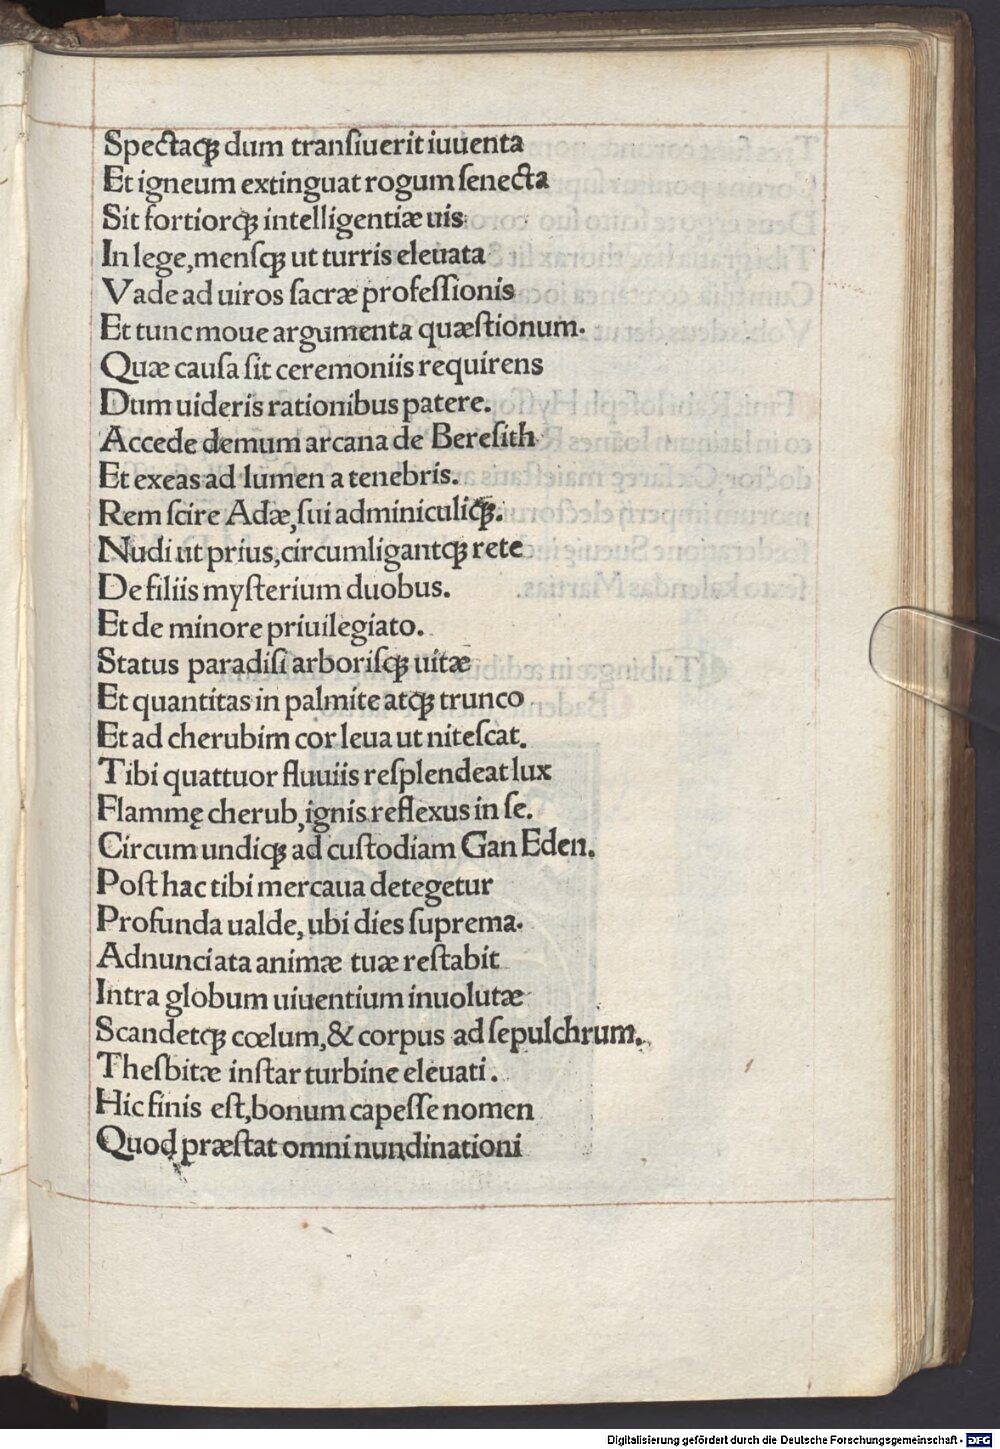 Spectaqꝫ dum tranſiuerit iuuenta
Et igneum extinguat rogum ſenecta
Sit fortiorqꝫ intelligentiæ uis
In lege,menſqꝫ ut turris eleuata
Vade ad uiros ſacræ profeſſionis
Et tunc moue argumenta quæſtionum.
Quæ cauſa ſit ceremoniis requirens
Dum uideris rationibus patere.
Accede demum arcana de Bereſith
Et exeas ad lumen a tenebris.
Rem ſcire Adæ,ſui adminiculiqꝫ.
Nudi ut prius,circumligantqꝫ rete
De filiis myſterium duobus.
Et de minore priuilegiato.
Status paradiſi arboriſqꝫ uitæ
Et quantitas in palmite atqꝫ trunco
Et ad cherubim cor leua ut niteſcat.
Tibi quattuor fluuiis reſplendeat lux
Flammę cherub,ignis reflexus in ſe.
Circum undiqꝫ ad cuſtodiam Gan Eden.
Poſt hac tibi mercaua detegetur
Profunda ualde,ubi dies ſuprema.
Adnunciata animæ tuæ reſtabit
Intra globum uiuentium inuolutæ
Scandetqꝫ cœlum,& corpus ad ſepulchrum.
Theſbitæ inſtar turbine eleuati.
Hic finis eſt,bonum capeſſe nomen
Quod præſtat omni nundinationi
Digitalisierung gefördert durch die Deutsche Forschungsgemeinschaft - DFG